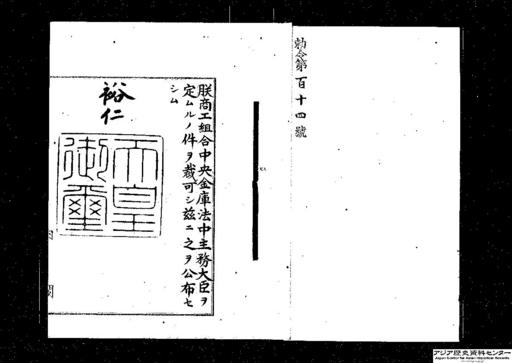 勅令第百十四號
朕商工組合中央金庫法中主務大臣ヲ
定ムルノ件ヲ裁可シ茲ニ之ヲ公布セ
シム
裕仁
天皇
御璽
アジア歴史資料センター
Japan Center for Asian Historical Records